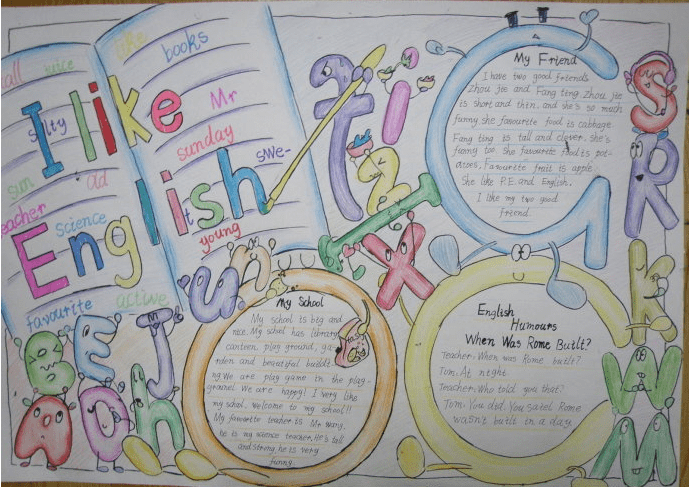 I like
English
call juice
like
books
salty
Mr
sunday
sun
ad
swe-
teacher
science
it
young
favourite
active
My Friend
I have two good friends
Zhou jie and Fang ting Zhou jie
is short and thin. and she's so much
funny. she favourite food is cabbage.
Fang ting is tall and clever. She's
funny too. She favourite food is pot-
atoes, Favourite fruit is apple.
She like P.E. and English.
I like my two good
friend.
My School
My school is big and
nice. My school has library
canteen, play ground, ga-
rden and beautiful buildi
ng We are play game in the play-
ground. We are happy! I very like
my school. Welcome to my school!!
My favourite teacher is Mr Wang,
he is my science teacher. He's tall
and strong, he is very
funny.
English
Humours
When Was Rome Built?
Teacher: When was Rome built?
Tom: At night.
Teacher: Who told you that?
Tom: You did. You saied Rome
wasn't built in a day.
t i
z
x
S
R
K
W
M
B E J
A O h
u n